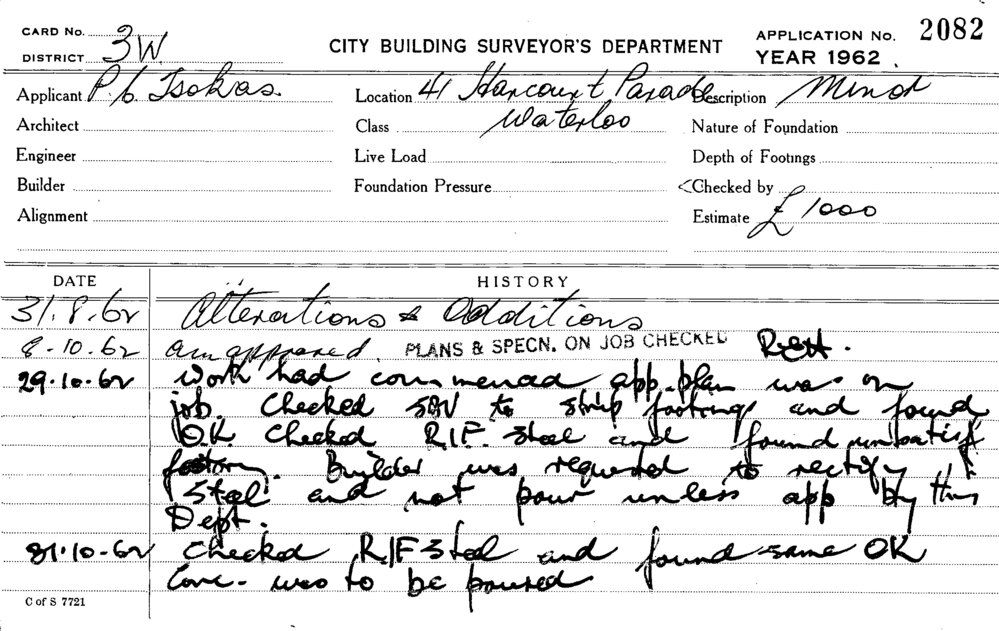 CARD No. 3W
DISTRICT
CITY BUILDING SURVEYOR'S DEPARTMENT
APPLICATION No. 2082
YEAR 1962
Applicant P. Tsokas.
Location 41 Harcourt Parade
Waterloo
Description Minor
Architect
Class
Nature of Foundation
Engineer
Live Load
Depth of Footings
Builder
Foundation Pressure
Checked by
Alignment
Estimate £1000
DATE HISTORY
31.8.62 Alterations & Additions
8-10.62 am approved. PLANS & SPECN. ON JOB CHECKED
29-10-62 Work had commenced app. plan was on
job. Checked to strip footings and found
OK Checked R/F. Steel and found unsatisf
factory. Builder was requested to rectify
Steel and not pour unless app by this
Dept.
31-10-62 Checked R/F Steel and found same OK
Conc- was to be poured
C of S 7721